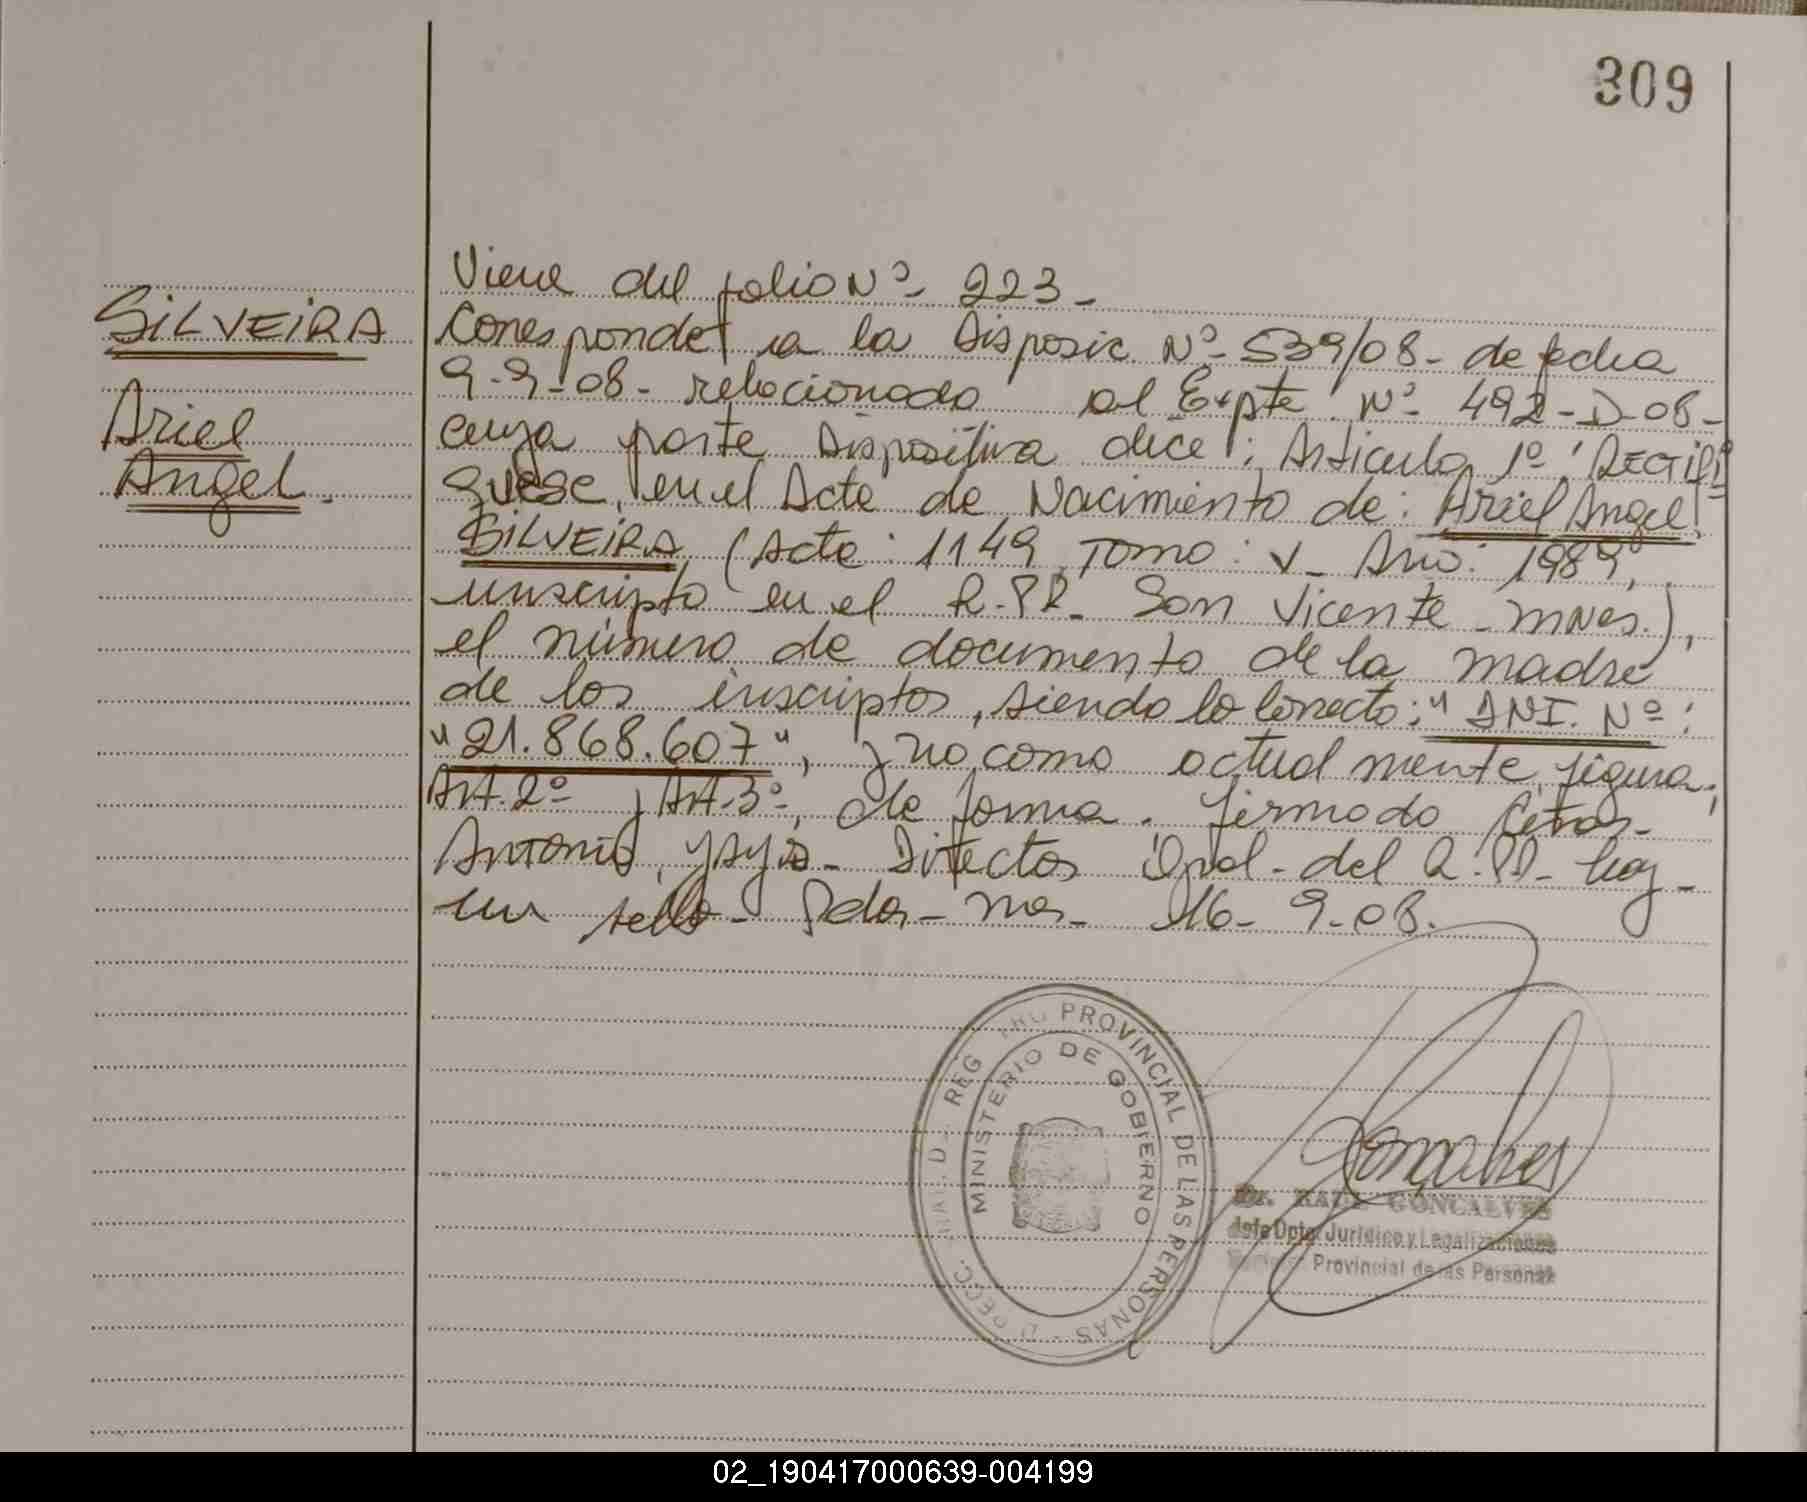 309
Viene del folio Nº 223-
SILVEIRA
Corresponde a la Disposic. Nº 539/08- de fecha
9-9-08- relacionado al Expte Nº 492-D-08-
Ariel
cuya parte dispositiva dice: Articulo 1º: RECTIFI
Angel.
quese, en el Acta de Nacimiento de: Ariel Angel
SILVEIRA (Acta: 1149 Tomo: V- Año: 1989,
inscripto en el R.P.P. San Vicente - Mnes.),
el número de documento de la madre
de los inscriptos, siendo lo correcto: "DNI. Nº:
"21.868.607", y no como actualmente figura;
Art. 2º y Art. 3º, de forma. firmado
Antonio Director Gral. del R.P.P- hay
un sello- Pdas- Mnes- 16-9-08.
PROVINCIAL DE LAS PERSONAS
MINISTERIO DE GOBIERNO
Dr. RAUL GONCALVES
Jefe Dpto. Jurídico y Legalizaciones
Provincial de las Personas
02_190417000639-004199